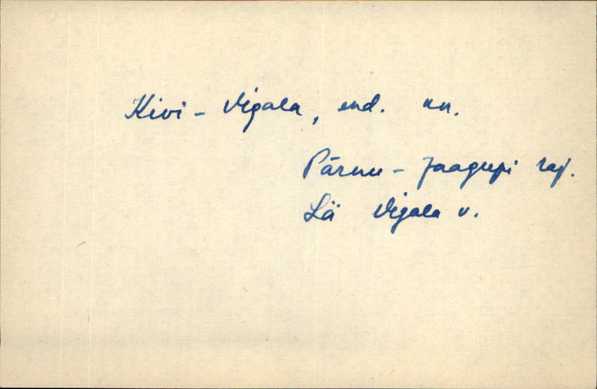 Kivi-Vigala, end. kn.
Pärnu-Jaagupi raj.
Lä Vigala v.